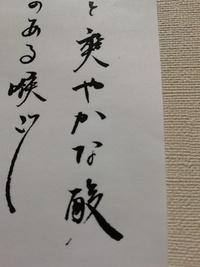 と爽やかな酸
のある喉ごし